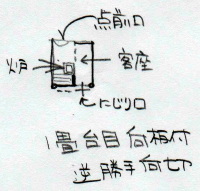 点前口
炉
客座
にじり口
1畳台目向板付
逆勝手向切